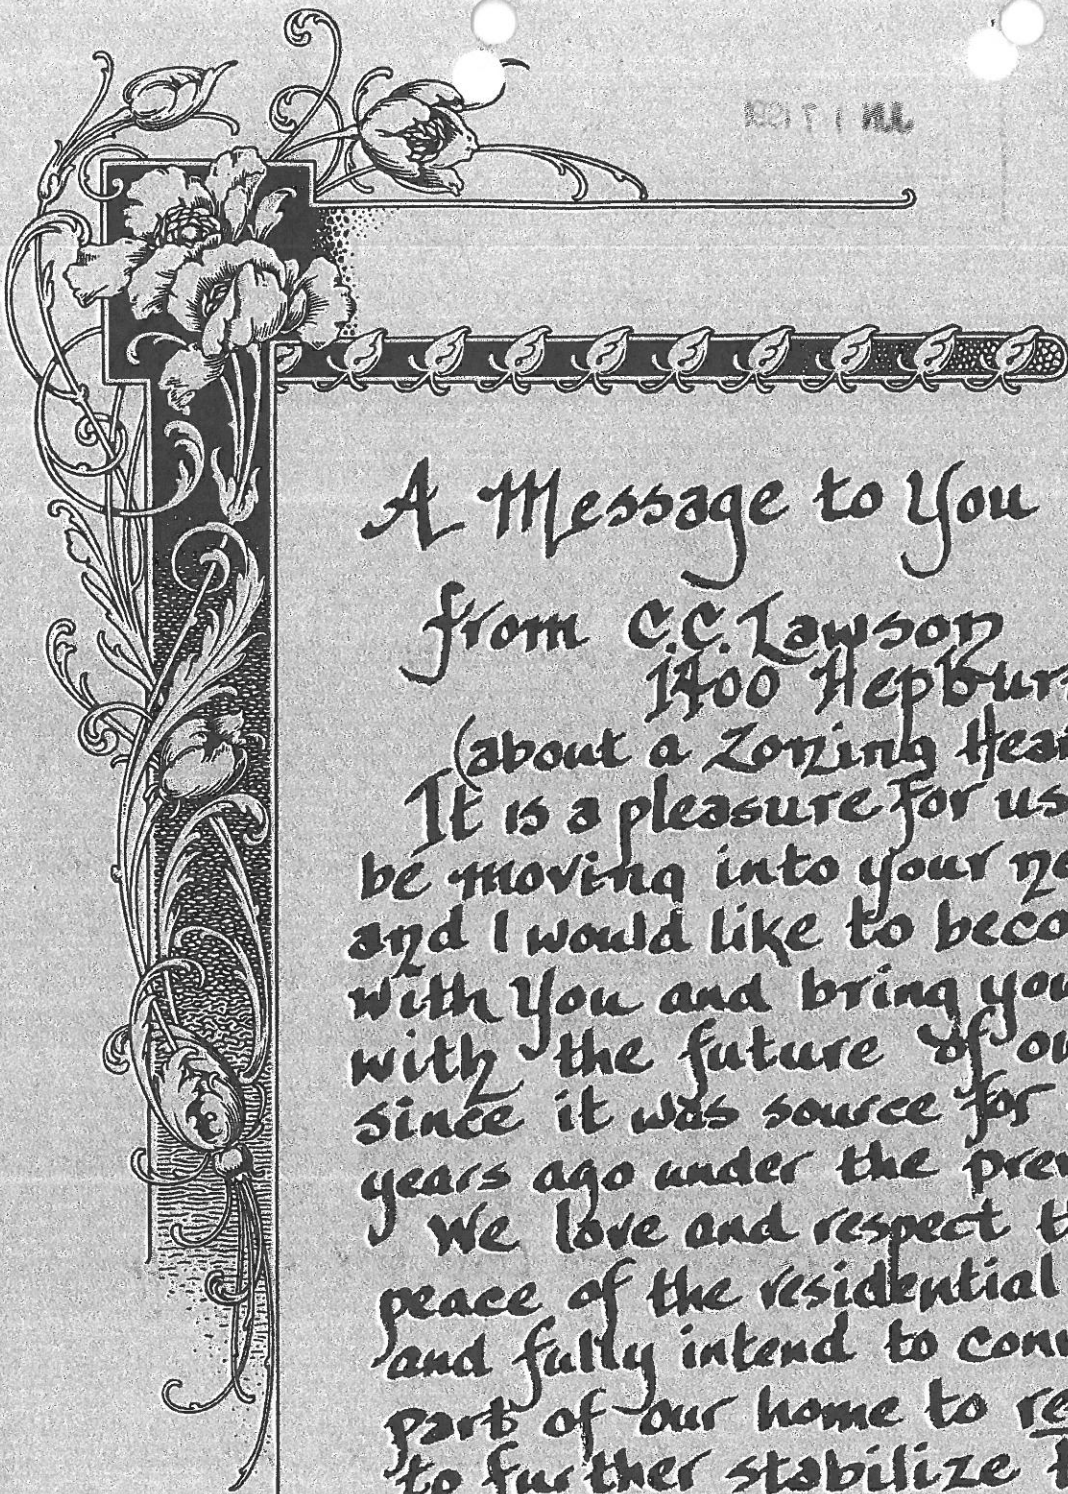 A Message to You
from C.C. Lawson
1400 Hepburn
(about a Zoning Hea
It is a pleasure for us
be moving into your ne
and I would like to beco
with You and bring you
with the future of ou
since it was source for
years ago under the prev
We love and respect t
peace of the residential
and fully intend to conv
part of our home to re
to further stabilize t